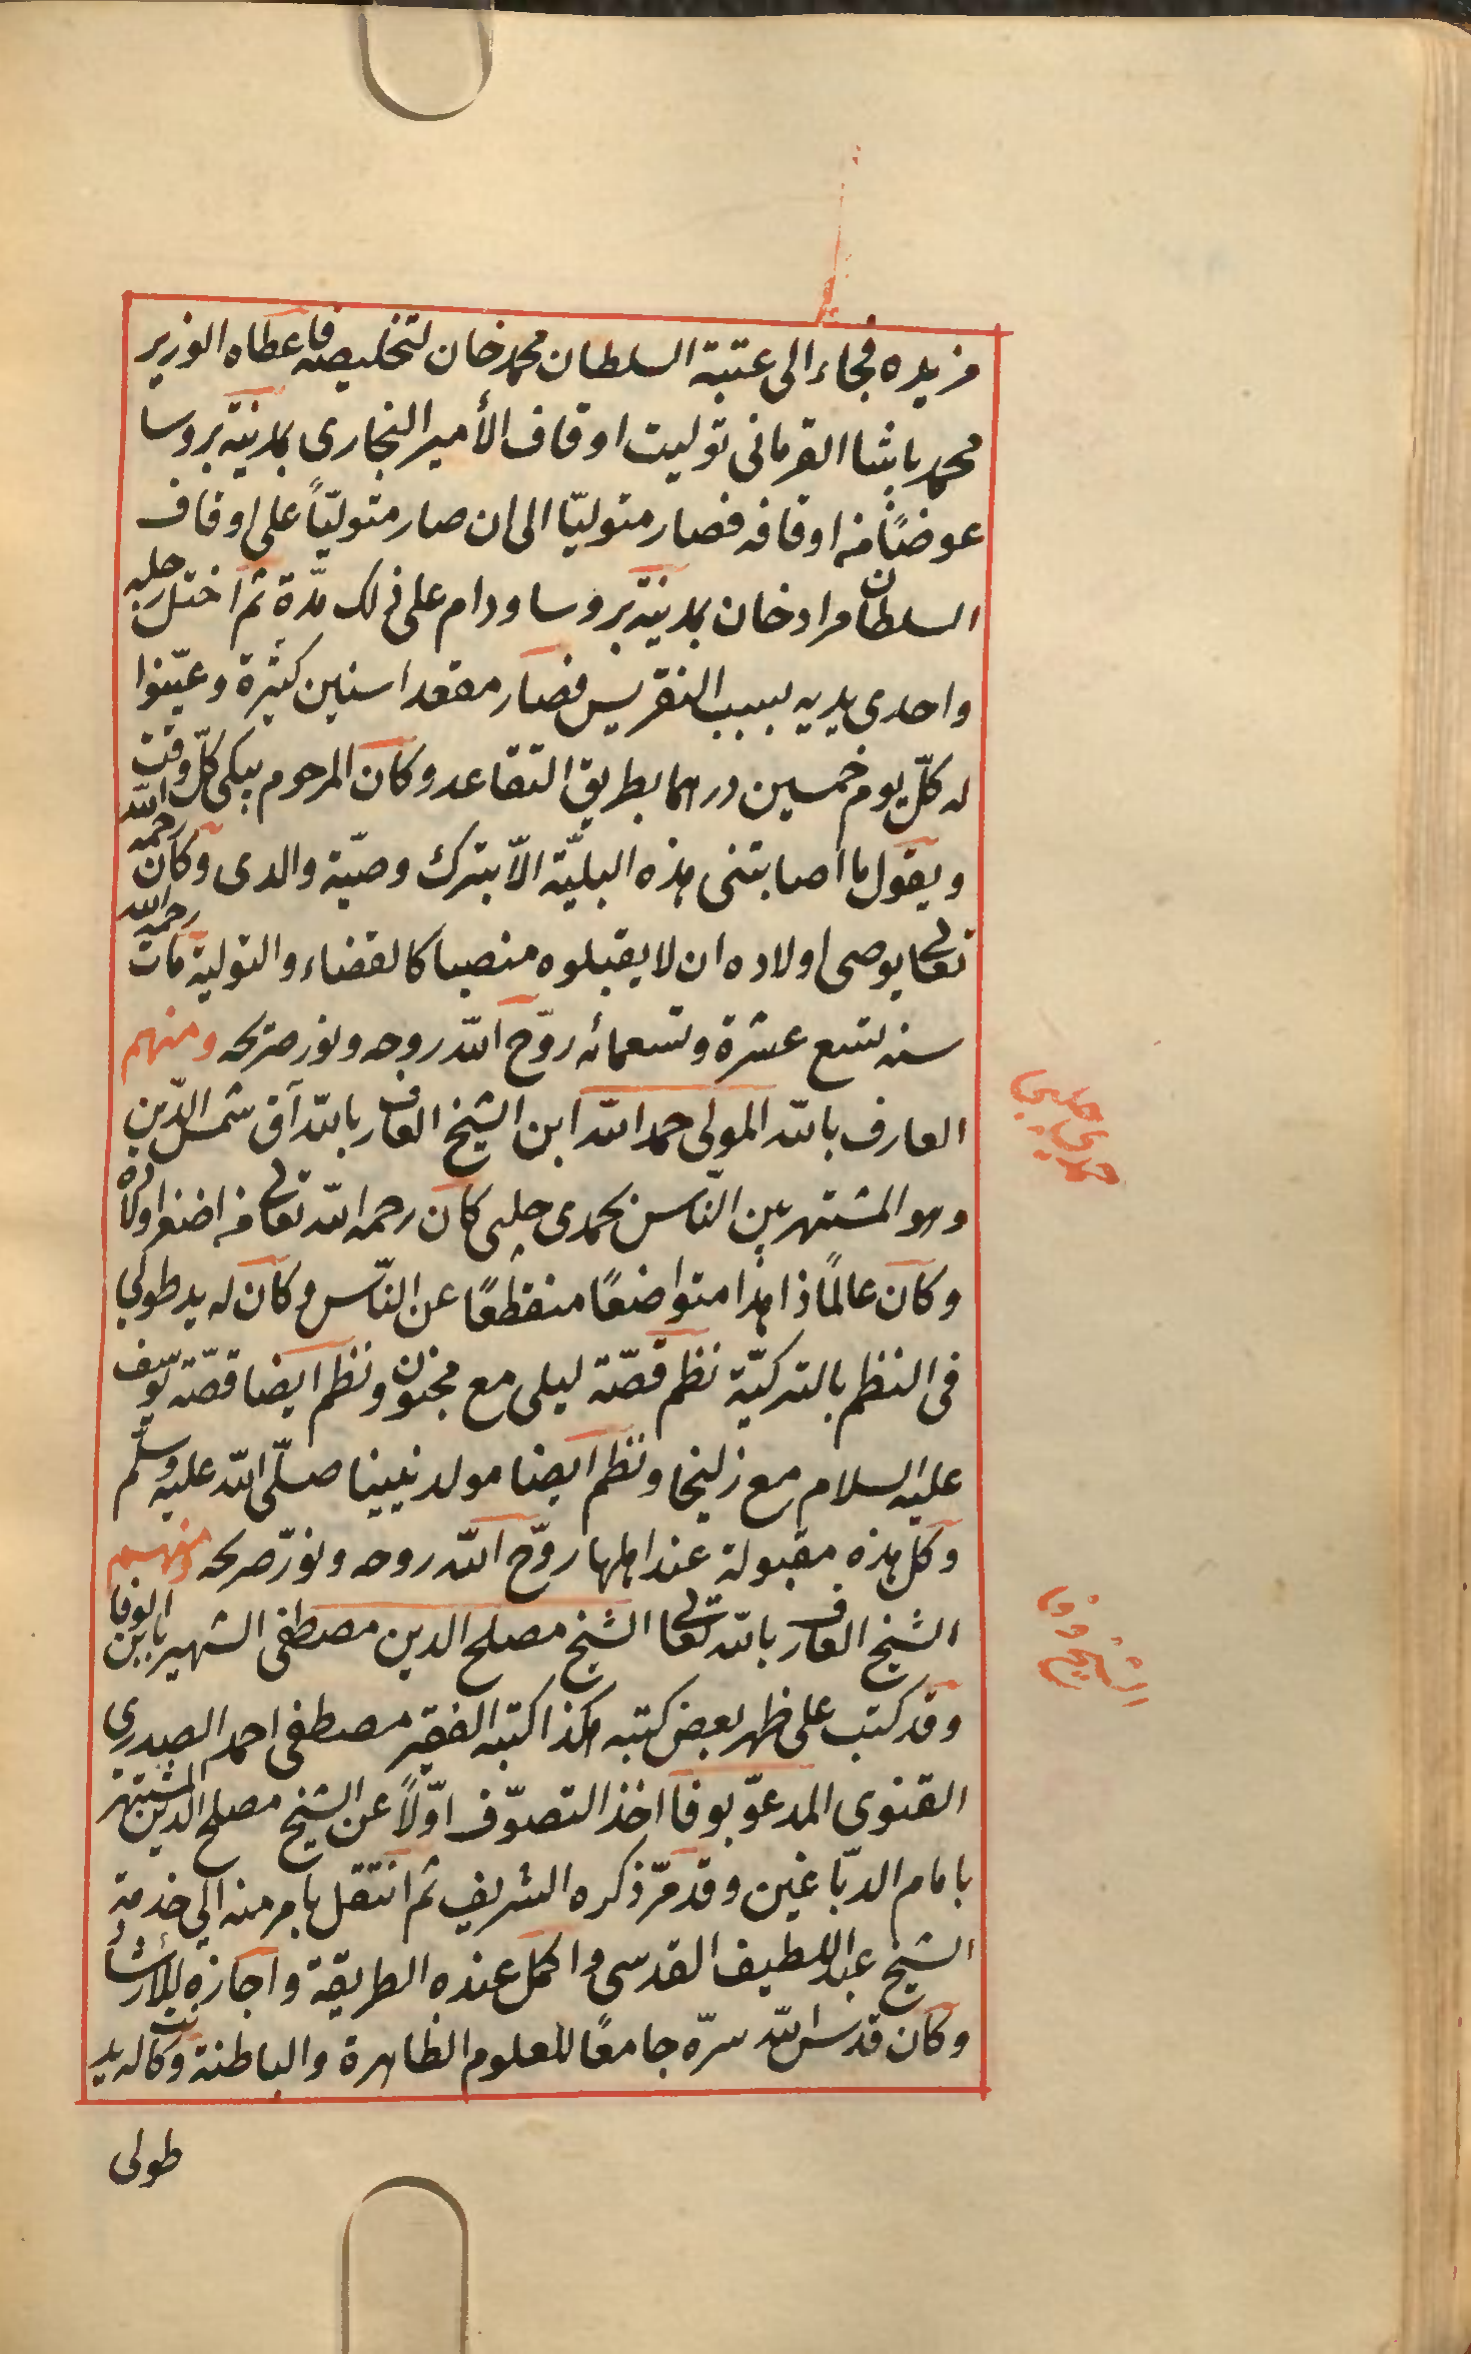 من يده فجاء الى عتبة السلطان محمد خان لتخليصه فاعطاه الوزير
محمد باشا القرمانى توليت اوقاف الأمير البخارى بمدينة بروسا
عوضًا من اوقافه فصار متوليّا الى ان صار متوليّاً على اوقاف
السلطان مراد خان بمدينة بروسا ودام على ذلك مدّة ثم اختل رجليه
واحدى يديه بسبب النقريس فصار مقعدا سنين كثيرة وعيّنوا
له كلّ يوم خمسين درهما بطريق التقاعد وكان المرحوم يبكى كلّ وقت
ويقول ما اصابتنى هذه البليّة الاّ بترك وصيّة والدى وكان رحمه الله
تعالى يوصى اولاده ان لا يقبلوه منصبا كالقضاء والتولية مات رحمه الله
سنه تسع عشرة وتسعمائه روّح الله روحه ونور ضريحه ومنهم
العارف بالله المولى حمد الله ابن الشيخ العارف بالله آق شمس الدّين
وهو المشتهر بين النّاس بحمدى چلبى كان رحمه الله تعالى من اضغر اولاده
وكان عالمًا زاهدا متواضعًا منقطعًا عن النّاس وكان له يد طولى
فى النظم بالتركيّة نظم قصّة ليلى مع مجنون ونظم ايضا قصّة يوسف
عليه السلام مع زليخا ونظم ايضا مولد نبيينا صلّى الله عليه وسلّم
وكل هذه مقبولة عند اهلها روّح الله روحه ونوّر ضريحه ومنهم
الشيخ العارف بالله تعالى الشيخ مصلح الدين مصطفى الشهير بابن الوفا
وقد كتب على ظهر بعض كتبه هكذا كتبه الفقير مصطفى احمد الصدرى
القنوى المدعوّ بوفا اخذ التصوّف اوّلاً عن الشيخ مصلح الدين المشتهر
بامام الدبّاغين وقد مرّ ذكره الشريف ثم انتقل بامر منه الى خدمة
الشيخ عبد اللطيف القدسى واكمل عنده الطريقة واجازه للارشاد
وكان قدس الله سرّه جامعًا للعلوم الظاهرة والباطنة وكانت له يد
طولى
حمدى چلبى
الشيخ وفا